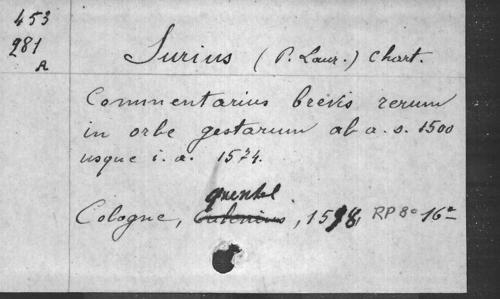 453
281
A
Surius (P. Laur.) Chart.
Commentarius brevis rerum
in orbe gestarum ab a. s. 1500
usque i. a. 1574.
quentel
Cologne, Calenius, 1598, RP 8° 16°